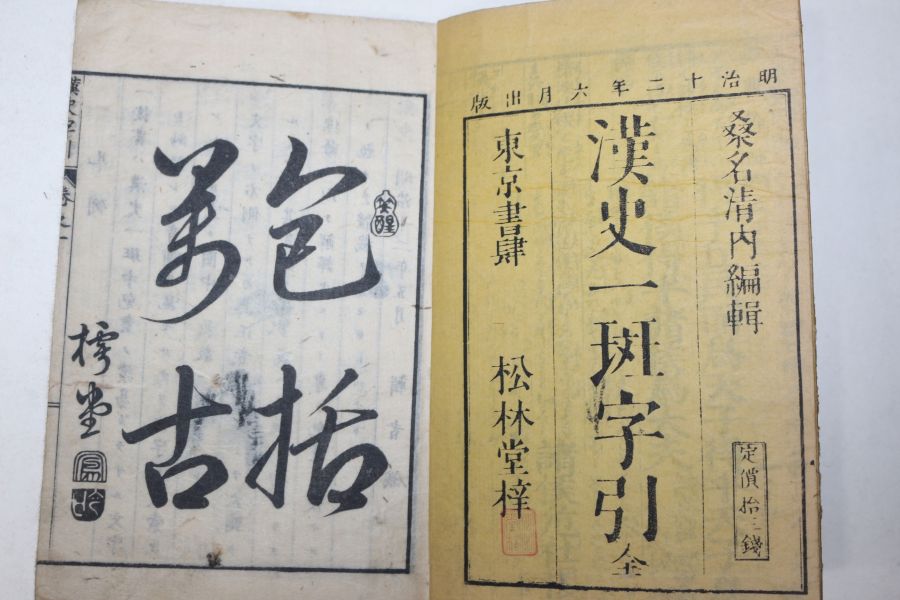 明治十二年六月出版
桑名清内編輯
定價拾三錢
漢史一斑字引 全
東京書肆 松林堂梓
包括
萬古
樗堂